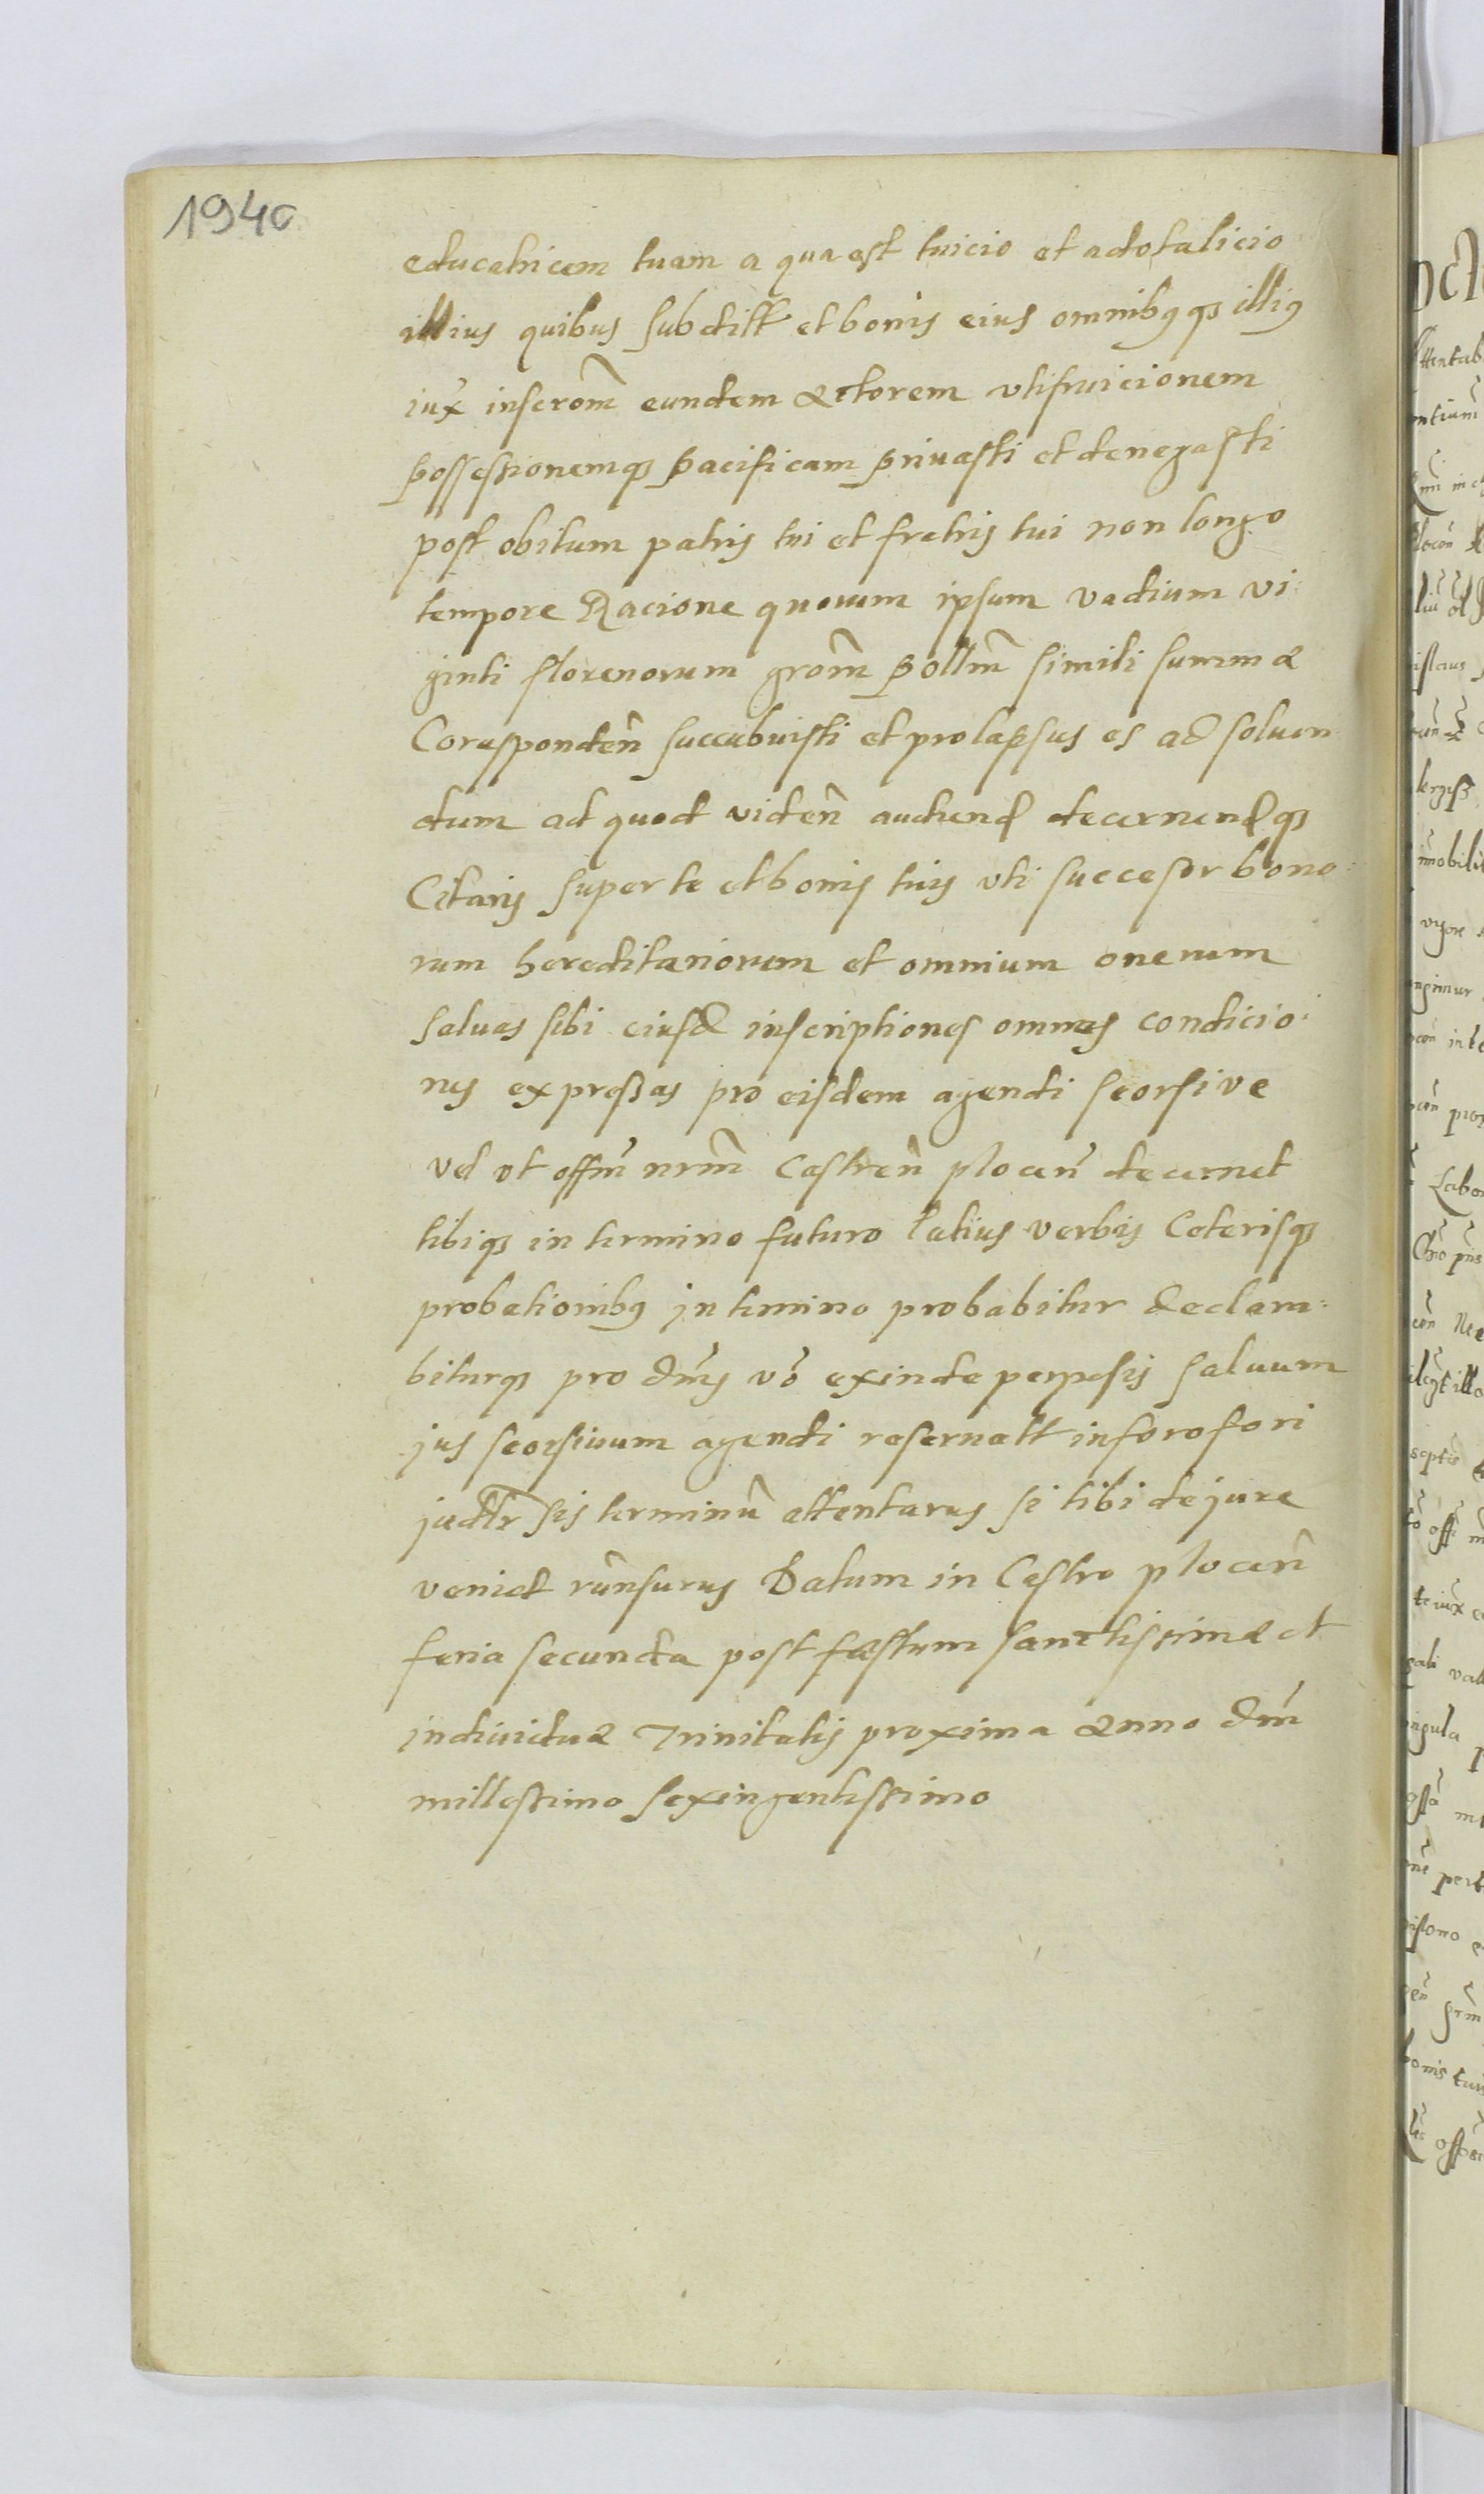 1940
educatricem tuam a qua est tuicio et adotalicio
illius quibus subditt et bonis eius omnibusqs illius
iux inscrom̃ eundem actorem vtifruicionem
possessionemqs pacificam priuasti et denegasti
post obitum patris tui et fratris tui non longo
tempore Racione quorum ipsum vadium vi:
ginti florenorum grom̃ pollm̃ simili summæ
Corespondeñ succubuisti et prolapsus es ad soluen
dum ad quod videñ audiend decernendqs
Citaris super te et bonis tuis vti succesor bono:
rum hereditariorum et omnium onerum
saluas sibi eiusd inscriptiones omnes condicio:
nes expressas pro eisdem agendi seorsive
vel vt offm̃ nrm̃ Castreñ ploceñ decernet
tibiqs in termino futuro latius verbis Ceterisqs
probationibus in termino probabitur declara:
biturqs pro dm̃is vo exinde perpesis saluum
jus seorsiuum agendi reseruatt in foro fori
judtr sis terminũ attentarus si tibi de jure
veniet rũnsurus Datum in Castro ploceñ
feria secunda post fæstum sanctissimæ et
individuæ Trinitatis proxima anno dm̃
millessimo sexingentissimo